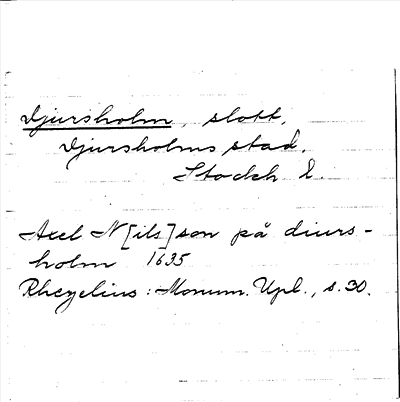 Djursholm, slott,
Djursholms stad,
Stockh l.
Axel N[ils]son på diurs-
holm 1635
Rhezelius: Monum. Upl., s. 30.